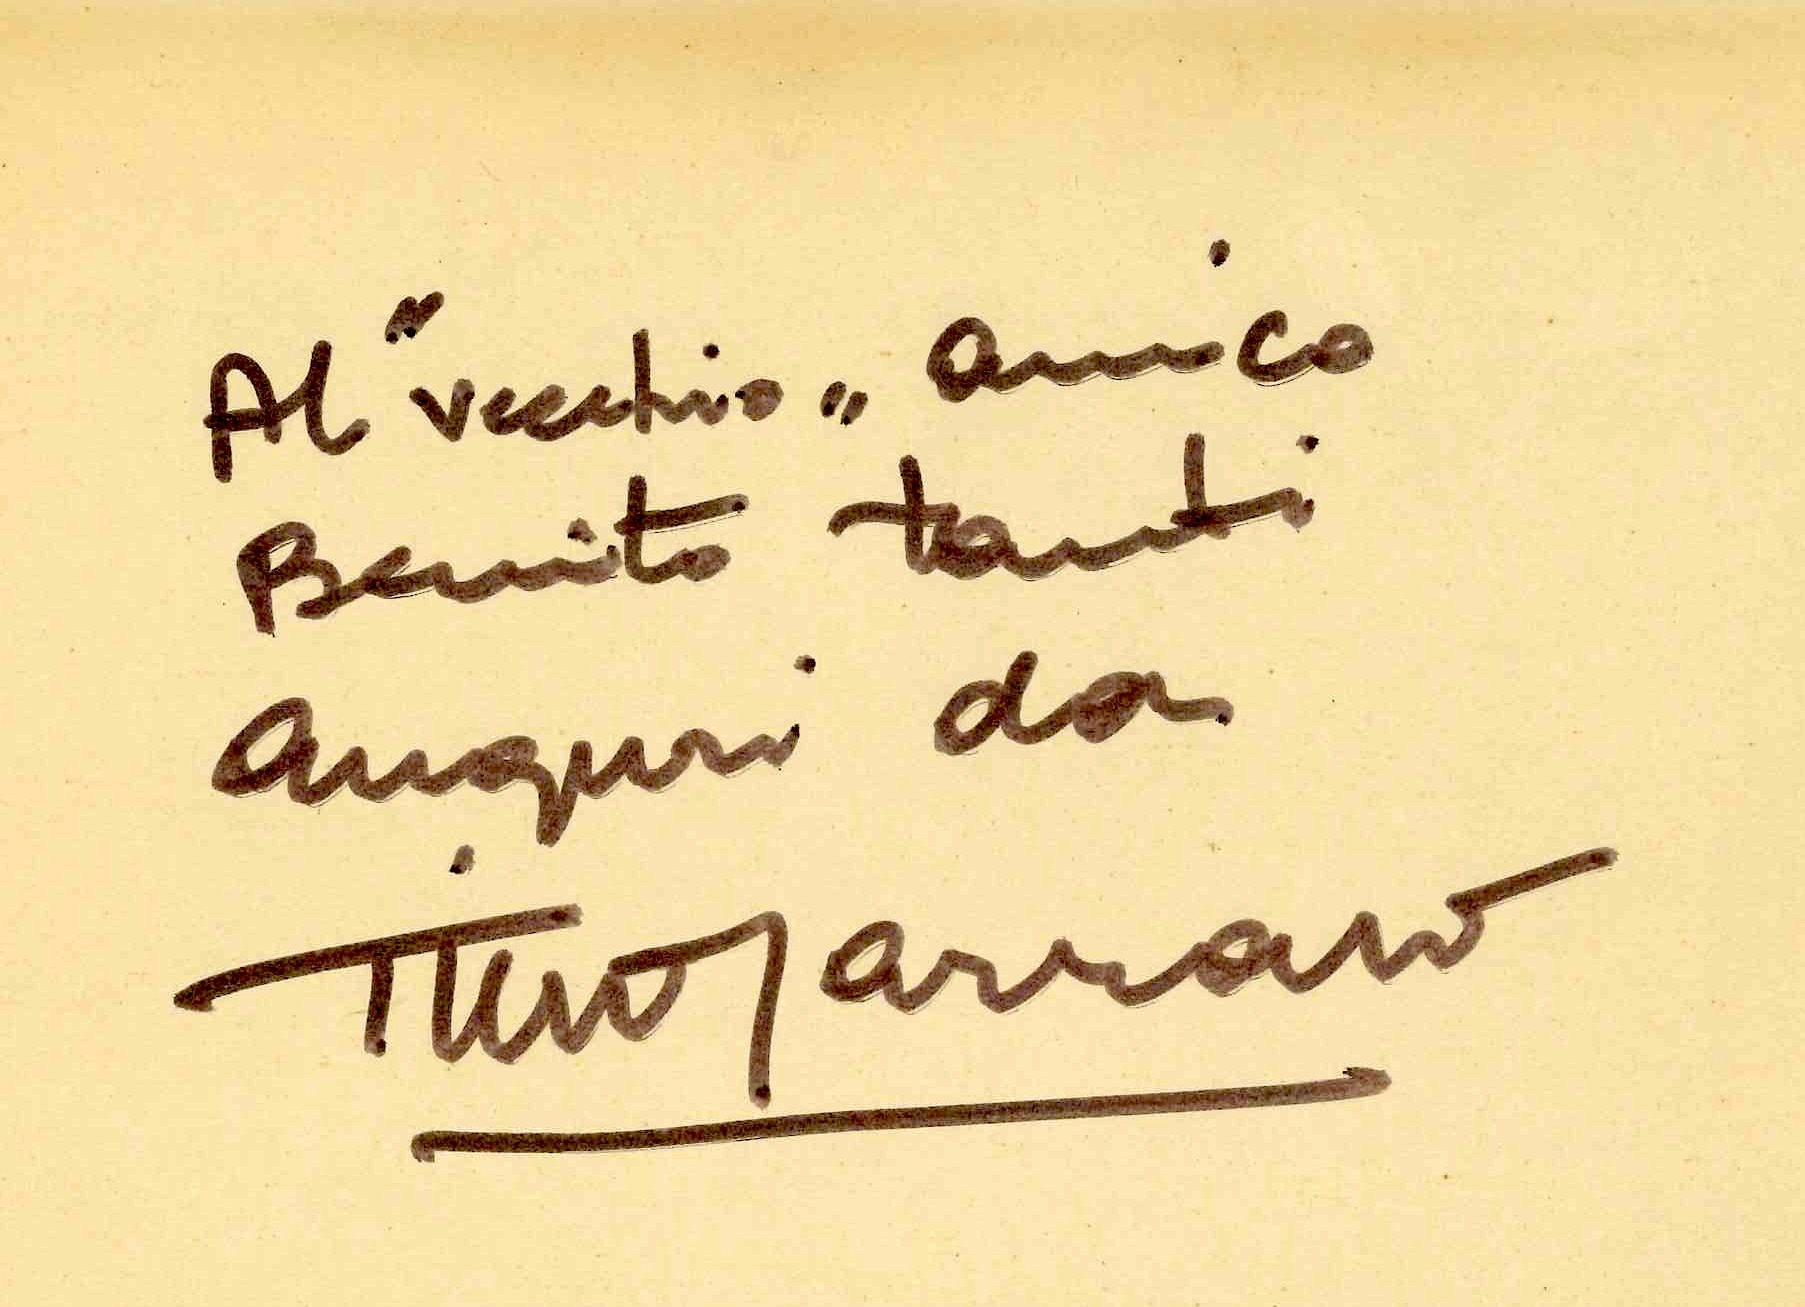 Al "vecchio" amico
Benito tanti
auguri da
Tino Carraro